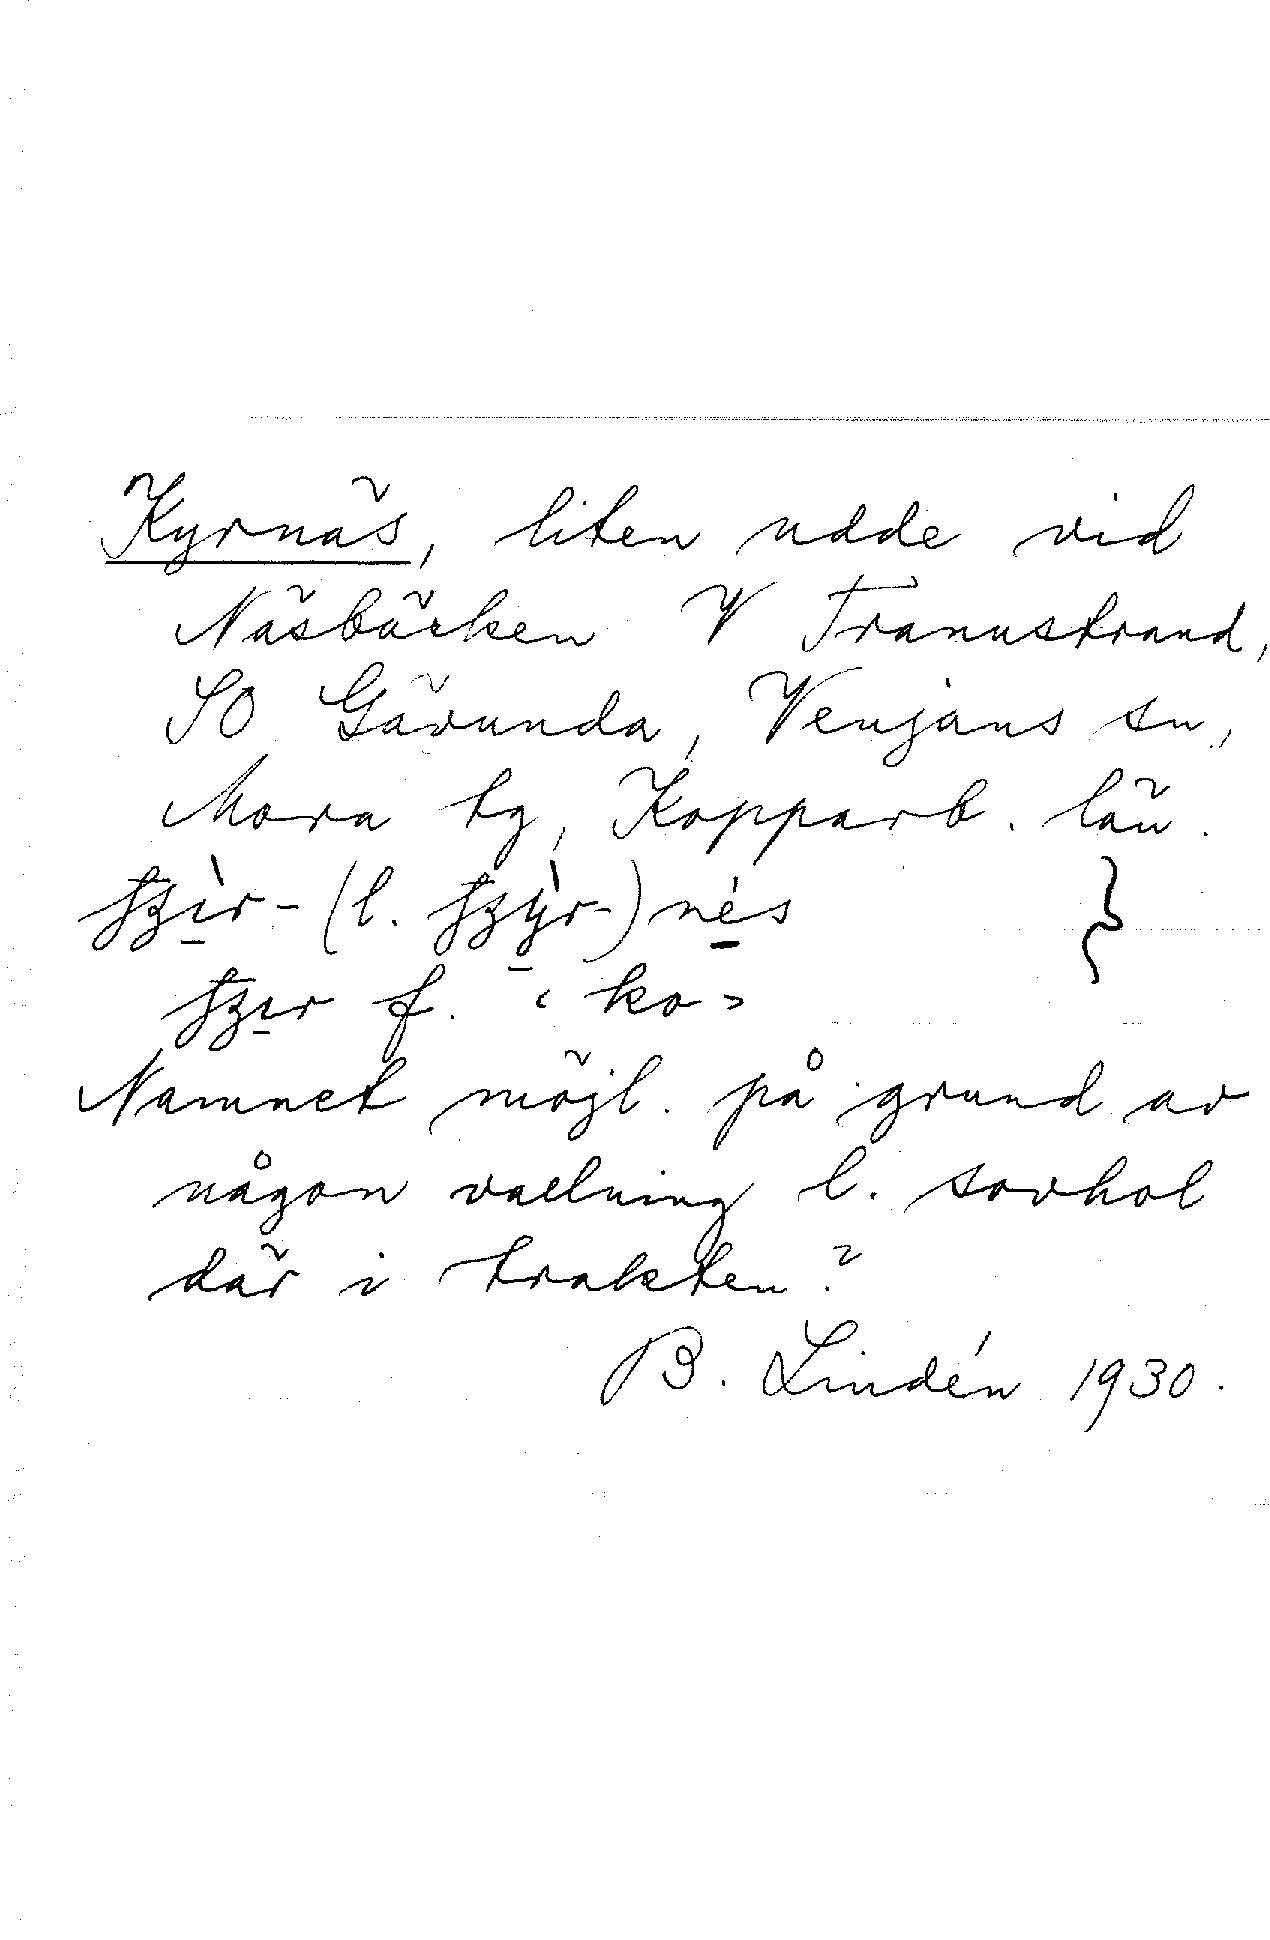 Kyrnäs, liten udde vid
Näsbäcken V Tranustrand,
SO Gävunda, Venjans sn,
Mora tg, Kopparb. län.
(l. ) nés
f. ‹ ko ›
Namnet möjl. på grund av
någon vallning l. sovhol
där i trakten?
B. Lindén 1930.